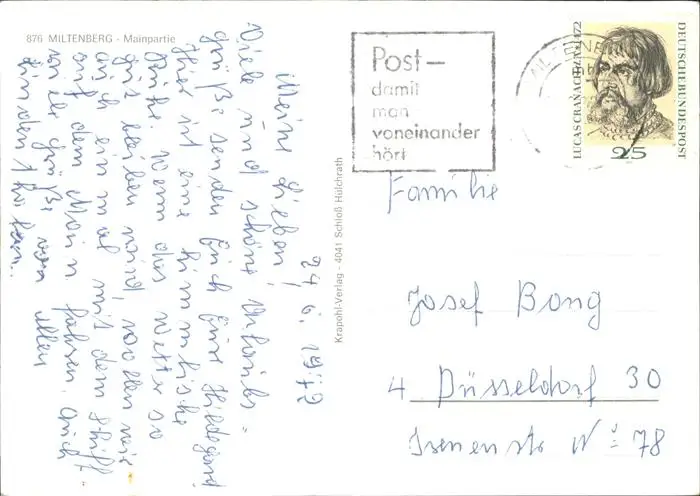 876 MILTENBERG - Mainpartie
24. 6. 1972
Meine Lieben!
Viele und schöne Urlaubs=
grüße senden Euch Eure Hildegard
Hier ist eine himmlische
Ruhe. Wenn das Wetter so
gut bleiben wird, wollen wir
auch einmal mit dem Schiff
auf dem Main fahren. Auch
viele Grüße von allen
Krapohl-Verlag - 4041 Schloß Hülchrath
Post-
damit
man
voneinander
hört
MILTENBERG
LUCAS CRANACH D.Ä. 1972
DEUTSCHE BUNDESPOST
25
Familie
Josef Bong
4 Düsseldorf 30
Isenenstr N° 78